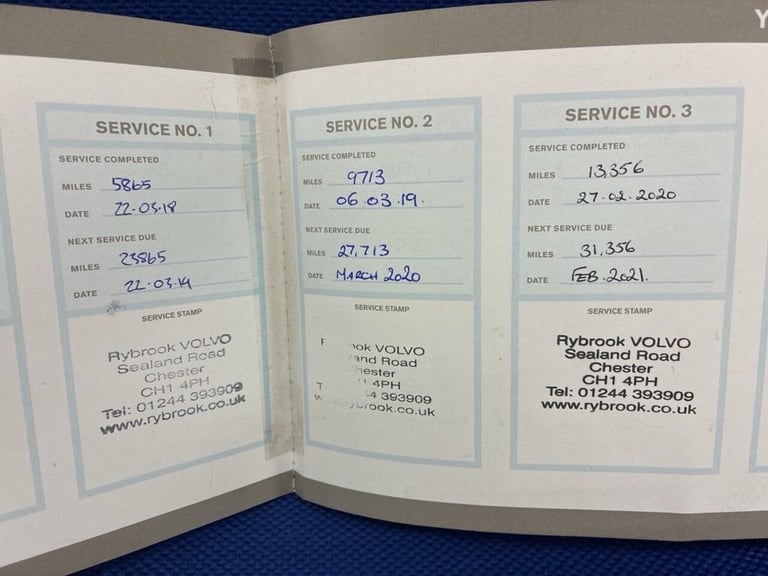 Y
SERVICE NO. 1
SERVICE COMPLETED
MILES 5865
DATE 22-03-18
NEXT SERVICE DUE
MILES 23865
DATE 22-03-19
SERVICE STAMP
Rybrook VOLVO
Sealand Road
Chester
CH1 4PH
Tel: 01244 393909
www.rybrook.co.uk
SERVICE NO. 2
SERVICE COMPLETED
MILES 9713
DATE 06.03.19.
NEXT SERVICE DUE
MILES 27,713
DATE MARCH 2020
SERVICE STAMP
VOLVO
Road
4PH
393909
SERVICE NO. 3
SERVICE COMPLETED
MILES 13,356
DATE 27.02.2020
NEXT SERVICE DUE
MILES 31,356
DATE FEB.2021.
SERVICE STAMP
Rybrook VOLVO
Sealand Road
Chester
CH1 4PH
Tel: 01244 393909
www.rybrook.co.uk